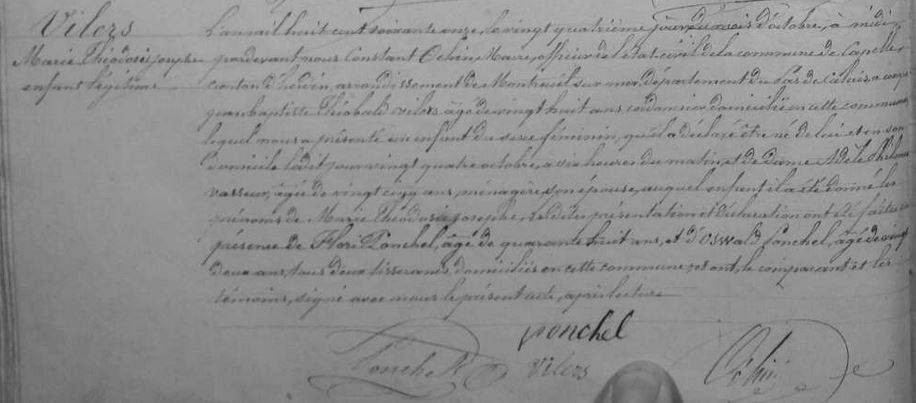 Vilers
Marie Théodosie josephe
enfant légitime
L'an mil huit cent soixante onze, le vingt quatrième jour du mois d'octobre, à midi,
pardevant nous Constant Maire, officier de l'état civil de la commune de Capelle
canton d'hesdin, arrondissement de Montreuil sur mer, département du Pas de Calais, a comparu
jean baptiste Théobald Vilers, âgé de vingt huit ans cordonnier domicilié en cette commune
lequel nous a présenté un enfant du sexe féminin, qu'il a déclaré être né de lui et en son
domicile ledit jour vingt quatre octobre, à heures du matin, et de dame Adèle
vasseur, âgée de vingt cinq ans, ménagère, son épouse, auquel enfant il a été donné les
prénoms de Marie Théodosie josephe, lesdites présentation et déclaration ont été faites en
présence de Flori Ponchel, âgé de quarante huit ans, et d'Oswald Ponchel, âgé de vingt
deux ans, tous deux tisserands, domiciliés en cette commune; et ont, le comparant et les
témoins, signé avec nous le présent acte, après lecture
ponchel
Ponchel Vilers